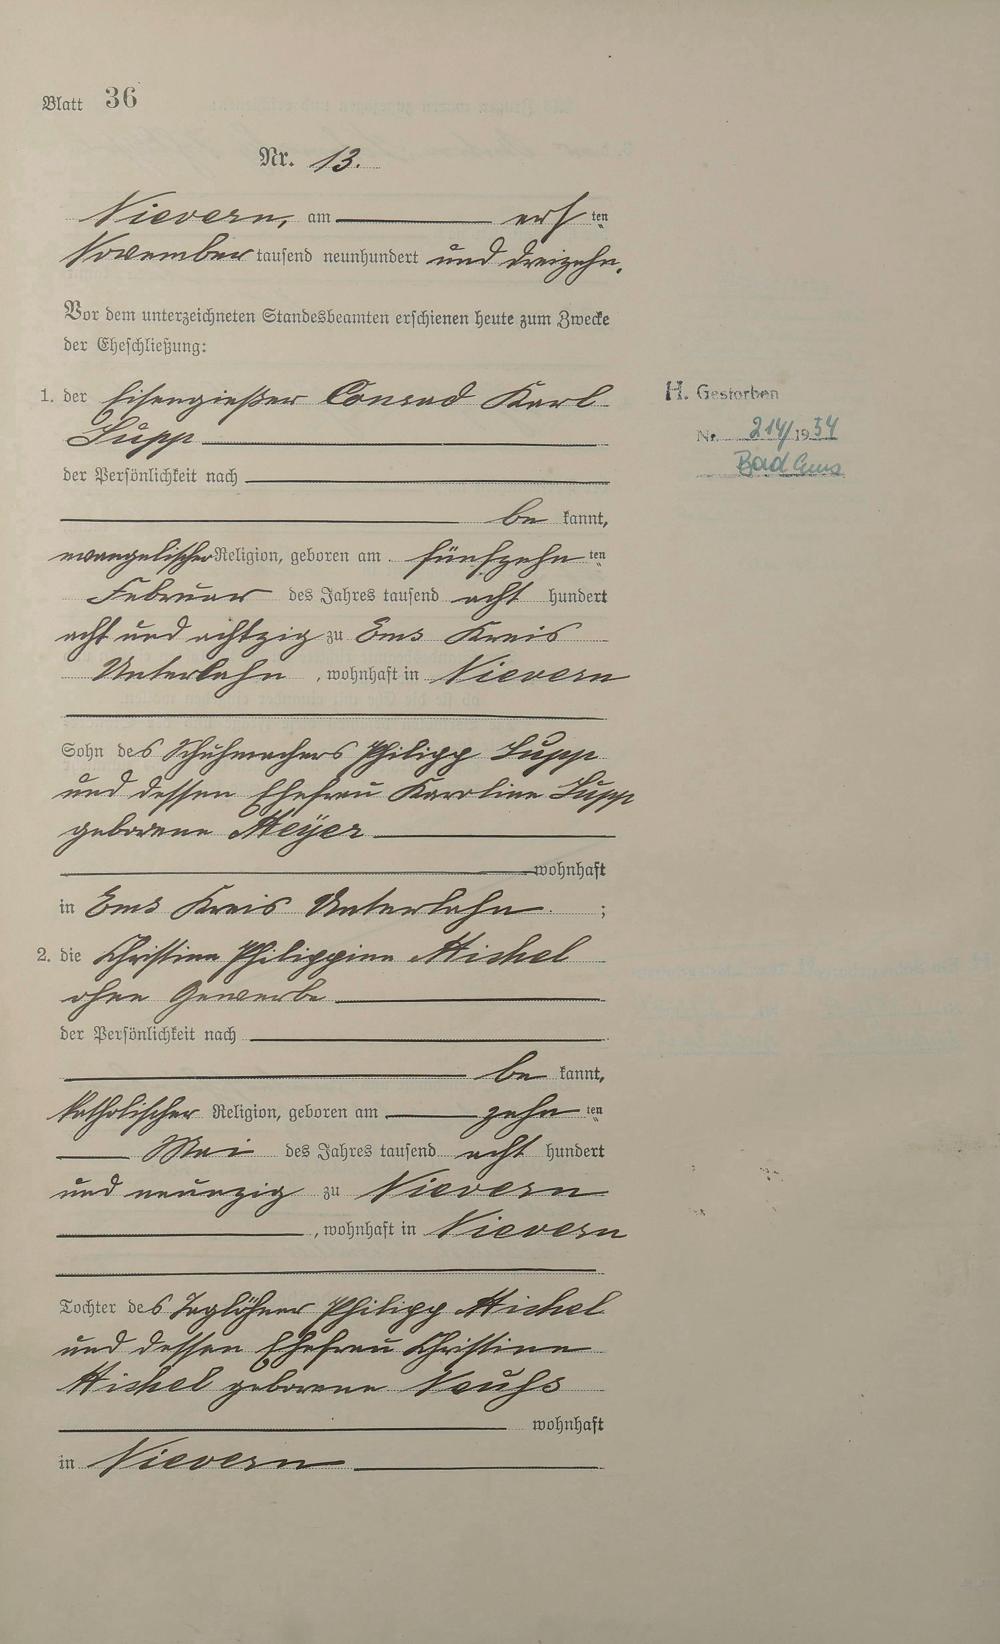 Blatt 36
Nr. 13.
Nievern, am erſten
November tauſend neunhundert und dreizehn.
Vor dem unterzeichneten Standesbeamten erſchienen heute zum Zwecke
der Eheſchließung:
1. der Eiſengießer Conrad Karl
Lupp
der Perſönlichkeit nach
be kannt,
evangeliſcher Religion, geboren am fünfzehn ten
Februar des Jahres tauſend acht hundert
acht und achtzig zu Ems Kreis
Unterlahn, wohnhaft in Nievern
Sohn des Schuhmachers Philipp Lupp
und deſſen Ehefrau Karoline Lupp
geborene Meÿer
wohnhaft
in Ems Kreis Unterlahn ;
2. die Chriſtine Philippine Michel
ohne Gewerbe
der Perſönlichkeit nach
be kannt,
katholiſcher Religion, geboren am zehn ten
Mai des Jahres tauſend acht hundert
und neunzig zu Nievern
, wohnhaft in Nievern
Tochter des Taglöhner Philipp Michel
und deſſen Ehefrau Chriſtine
Michel geborene
wohnhaft
in Nievern
H. Gestorben
Nr. 214/1954
Bad Ems